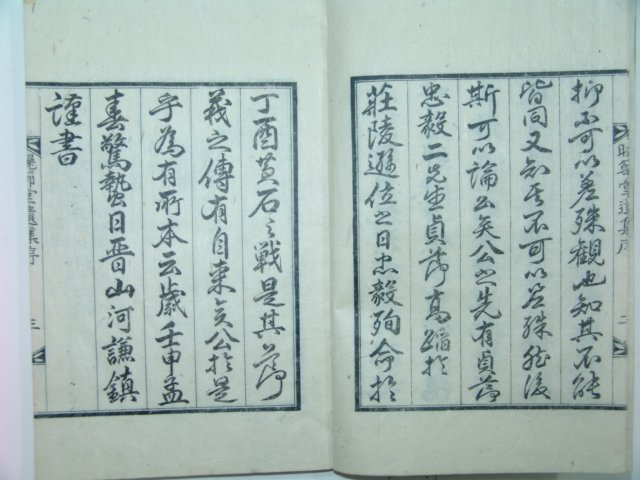 抑不可以差殊觀也知其不能
皆同又知其不可以差殊然後
斯可以論公矣公之先有貞節
忠毅二先生貞節高蹈於
莊陵遜位之日忠毅殉命於
堂遺集序 二
丁酉黃石之戰是其節
義之傳有自來矣公於是
乎為有所本云歲壬申孟
春驚蟄日晉山河謙鎮
謹書
堂遺集序 三